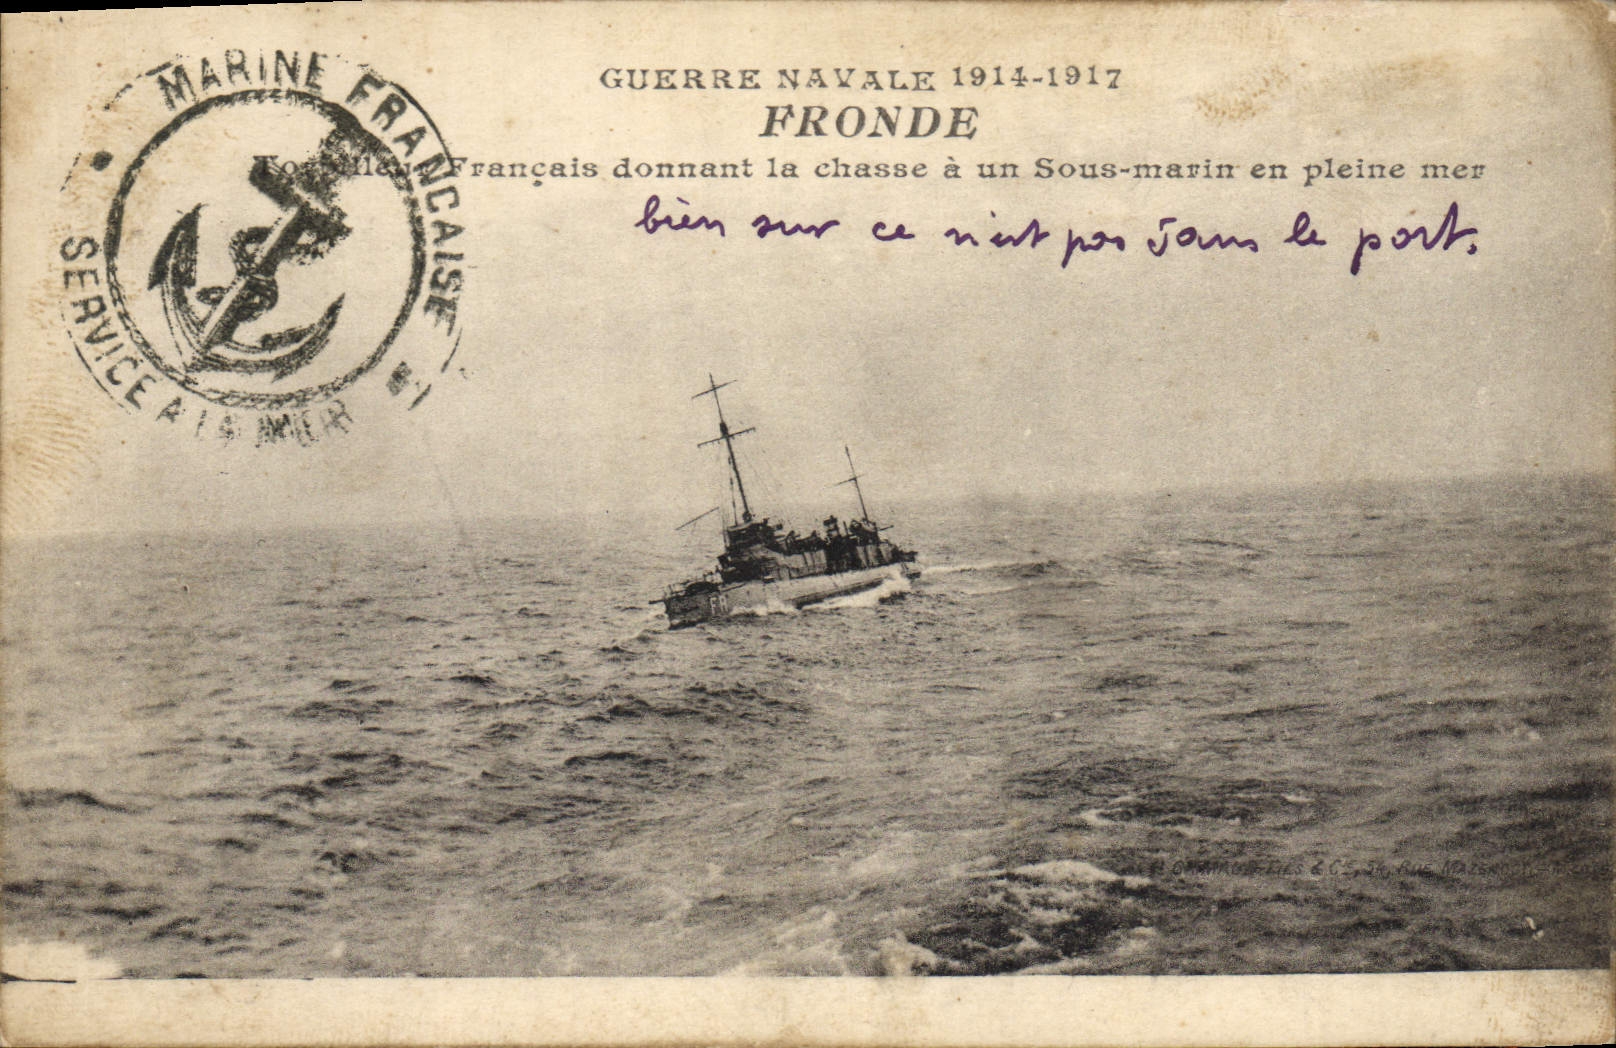 GUERRE NAVALE 1914-1917
FRONDE
Torpilleur Français donnant la chasse à un Sous-marin en pleine mer
bien sur ce n'est pas dans le port.
MARINE FRANÇAISE
SERVICE A LA MER
FR
& Cie, 54, RUE